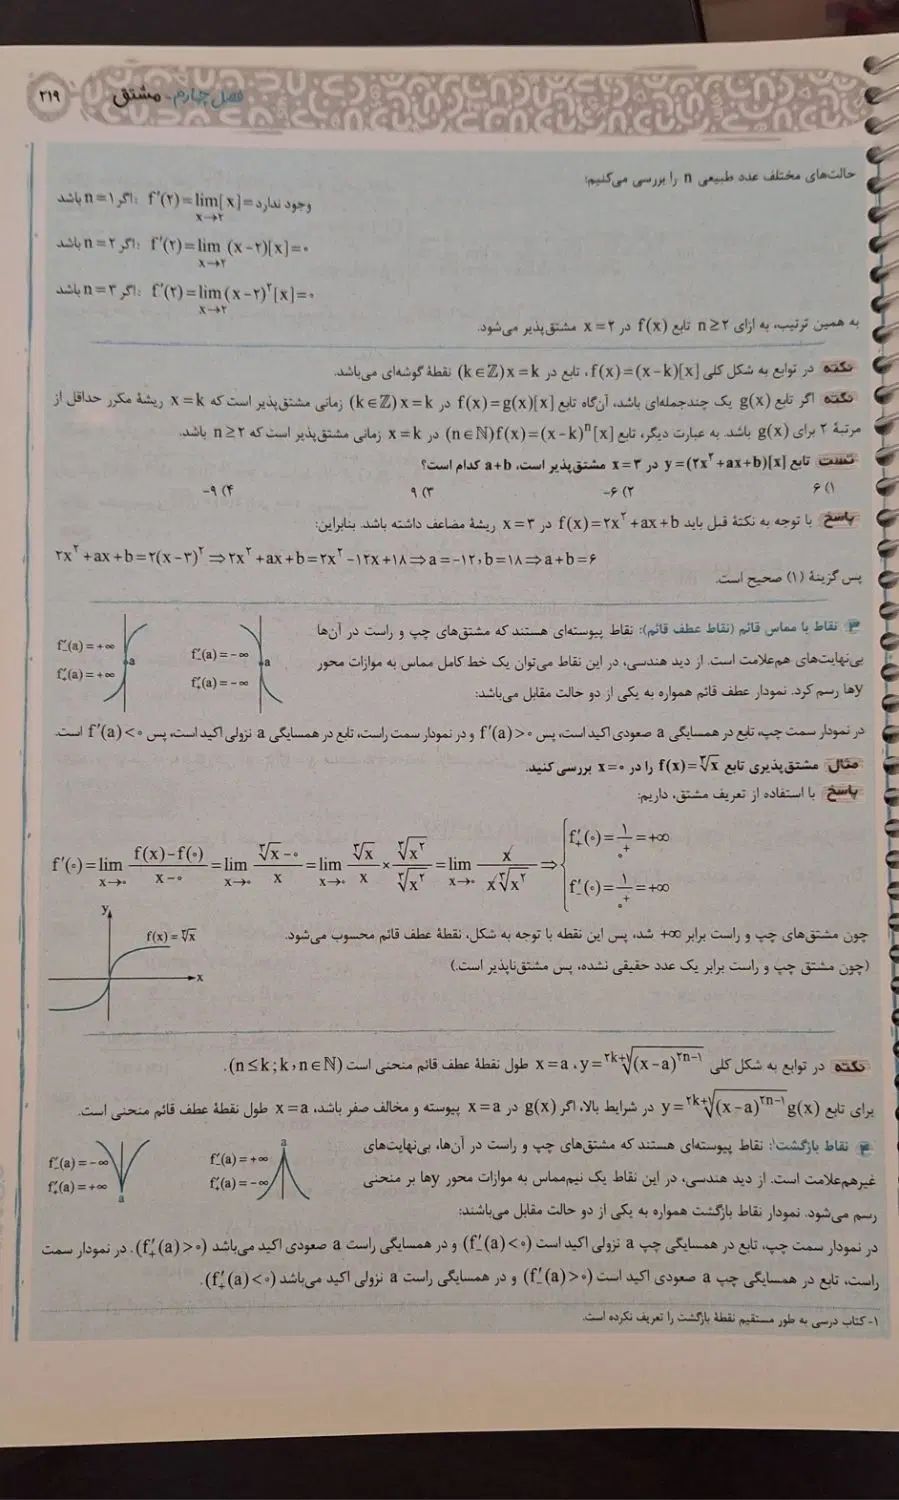 فصل چهارم - مشتق
۲۱۹
حالت‌های مختلف عدد طبیعی n را بررسی می‌کنیم:
اگر n=۱ باشد: f′(۲)=lim[x]=وجود ندارد
x→۲
اگر n=۲ باشد: f′(۲)=lim (x-۲)[x]=۰
x→۲
اگر n=۳ باشد: f′(۲)=lim(x-۲)²[x]=۰
x→۲
به همین ترتیب، به ازای n≥۲ تابع f(x) در x=۲ مشتق‌پذیر می‌شود.
نکته در توابع به شکل کلی f(x)=(x-k)[x]، تابع در x=k(k∈ℤ) نقطهٔ گوشه‌ای می‌باشد.
نکته اگر تابع g(x) یک چندجمله‌ای باشد، آن‌گاه تابع f(x)=g(x)[x] در x=k(k∈ℤ) زمانی مشتق‌پذیر است که x=k ریشهٔ مکرر حداقل از
مرتبهٔ ۲ برای g(x) باشد. به عبارت دیگر، تابع f(x)=(x-k)ⁿ[x](n∈ℕ) در x=k زمانی مشتق‌پذیر است که n≥۲ باشد.
تست تابع y=(۲x²+ax+b)[x] در x=۳ مشتق‌پذیر است، a+b کدام است؟
۱) ۶ ۲) -۶ ۳) ۹ ۴) -۹
پاسخ با توجه به نکتهٔ قبل باید f(x)=۲x²+ax+b در x=۳ ریشهٔ مضاعف داشته باشد. بنابراین:
۲x²+ax+b=۲(x-۳)²⇒۲x²+ax+b=۲x²-۱۲x+۱۸⇒a=-۱۲،b=۱۸⇒a+b=۶
پس گزینهٔ (۱) صحیح است.
۳ نقاط با مماس قائم (نقاط عطف قائم): نقاط پیوسته‌ای هستند که مشتق‌های چپ و راست در آن‌ها
بی‌نهایت‌های هم‌علامت است. از دید هندسی، در این نقاط می‌توان یک خط کامل مماس به موازات محور
yها رسم کرد. نمودار عطف قائم همواره به یکی از دو حالت مقابل می‌باشد:
f′₋(a)=-∞
f′₊(a)=-∞
a
f′₋(a)=+∞
f′₊(a)=+∞
a
در نمودار سمت چپ، تابع در همسایگی a صعودی اکید است، پس f′(a)>۰ و در نمودار سمت راست، تابع در همسایگی a نزولی اکید است، پس f′(a)<۰ است.
مثال مشتق‌پذیری تابع f(x)=∛x را در x=۰ بررسی کنید.
پاسخ با استفاده از تعریف مشتق، داریم:
f′(۰)=lim f(x)-f(۰)/x-۰ =lim ∛x-۰/x =lim ∛x/x × ∛x²/∛x² =lim x/x∛x² ⇒ { f′₊(۰)=۱/۰⁺=+∞
f′₋(۰)=۱/۰⁺=+∞
x→۰ x→۰ x→۰ x→۰
چون مشتق‌های چپ و راست برابر +∞ شد، پس این نقطه با توجه به شکل، نقطهٔ عطف قائم محسوب می‌شود.
(چون مشتق چپ و راست برابر یک عدد حقیقی نشده، پس مشتق‌ناپذیر است.)
y
f(x)=∛x
x
نکته در توابع به شکل کلی y=²ᵏ⁺¹√(x-a)²ⁿ⁻¹، x=a طول نقطهٔ عطف قائم منحنی است (n≤k;k,n∈ℕ).
برای تابع y=²ᵏ⁺¹√(x-a)²ⁿ⁻¹g(x) در شرایط بالا، اگر g(x) در x=a پیوسته و مخالف صفر باشد، x=a طول نقطهٔ عطف قائم منحنی است.
۴ نقاط بازگشت¹: نقاط پیوسته‌ای هستند که مشتق‌های چپ و راست در آن‌ها، بی‌نهایت‌های
غیرهم‌علامت است. از دید هندسی، در این نقاط یک نیم‌مماس به موازات محور yها بر منحنی
رسم می‌شود. نمودار نقاط بازگشت همواره به یکی از دو حالت مقابل می‌باشند:
a
f′₋(a)=+∞
f′₊(a)=-∞
f′₋(a)=-∞
f′₊(a)=+∞
a
در نمودار سمت چپ، تابع در همسایگی چپ a نزولی اکید است (f′₋(a)<۰) و در همسایگی راست a صعودی اکید می‌باشد (f′₊(a)>۰). در نمودار سمت
راست، تابع در همسایگی چپ a صعودی اکید است (f′₋(a)>۰) و در همسایگی راست a نزولی اکید می‌باشد (f′₊(a)<۰).
۱- کتاب درسی به طور مستقیم نقطهٔ بازگشت را تعریف نکرده است.